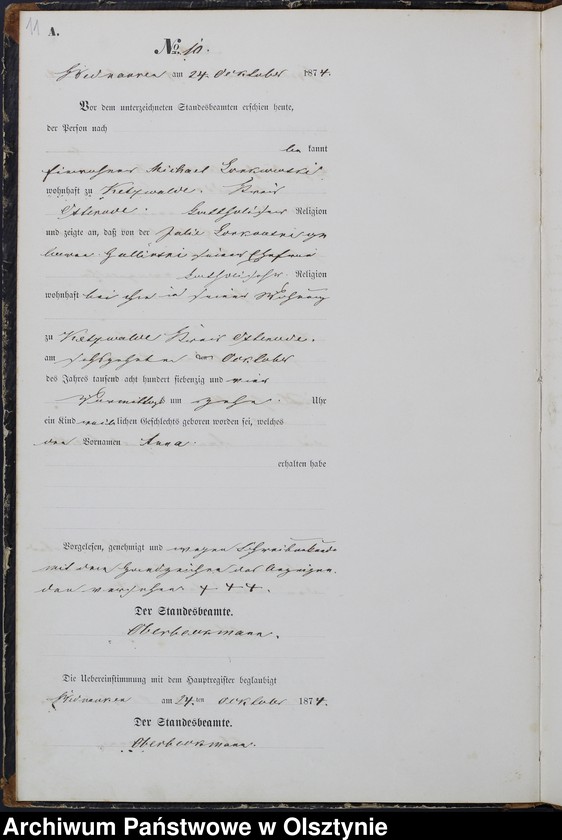 11
A.
No. 10.
am 24. October 1874.
Vor dem unterzeichneten Standesbeamten erschien heute,
der Person nach
be kannt
Einwohner Michael
wohnhaft zu Ketzwalde. Kreis
Osterode. katholischer Religion
und zeigte an, daß von der Julie ge
borene seiner Ehefrau
katholischer Religion
wohnhaft bei ihm in seiner Wohnung
zu Ketzwalde Kreis Osterode.
am sechszehnten October
des Jahres tausend acht hundert siebenzig und vier
Vormittags um zehn Uhr
ein Kind weiblichen Geschlechts geboren worden sei, welches
den Vornamen Anna
erhalten habe
Vorgelesen, genehmigt und wegen Schreibunkunde
mit dem Handzeichen des Anzeigen
den versehen + + +.
Der Standesbeamte.
Oberbeckmann.
Die Uebereinstimmung mit dem Hauptregister beglaubigt
am 24.ten October 1874.
Der Standesbeamte.
Oberbeckmann.
Archiwum Państwowe w Olsztynie